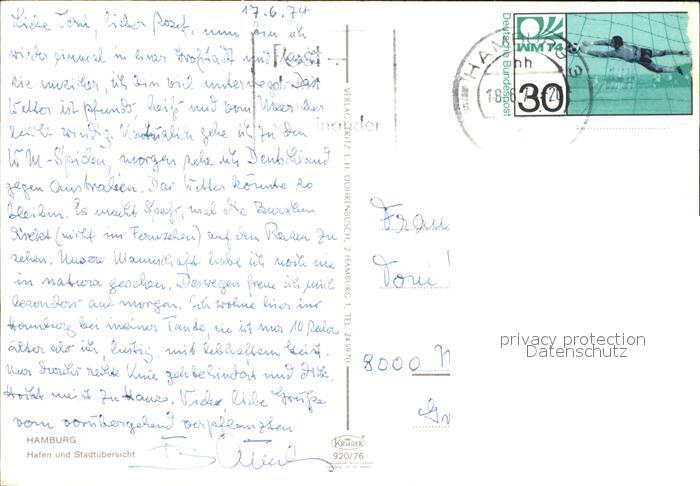 17.6.74
Liebe Toni, lieber Josef, nun bin ich
wieder einmal in einer Großstadt und
sie, ich bin viel unterwegs. Das
Wetter ist pfundt, heiß und vom Meer her
leicht windig. Natürlich gehe ich zu den
WM-Spielen, morgen sehe ich Deutschland
gegen Australien. Das Wetter könnte so
bleiben. Es macht Spaß, mal die Burschen
direkt (nicht im Fernsehen) auf dem Rasen zu
sehen. Unsere Mannschaft habe ich noch nie
in natura gesehen. Deswegen freue ich mich
besonders auf morgen. Ich wohne hier in
Hamburg bei meiner Tante, sie ist nur 10 Jahre
älter als ich, lustig, mit lebhaftem Geist.
Nur durchs rechte Knie gehbehindert und
meist zu Hause. Viele, liebe Grüße
vom vorübergehend verpflanzten
HAMBURG
Hafen und Stadtübersicht
VERLAG FRITZ E.H. DOHRENBUSCH, 2 HAMBURG 1, TEL. 245970
KRÜGER
920/76
Deutsche Bundespost
WM 74
30
HAMBURG
hh
18.6.
inander
Frau
Toni
8000 M
privacy protection
Datenschutz